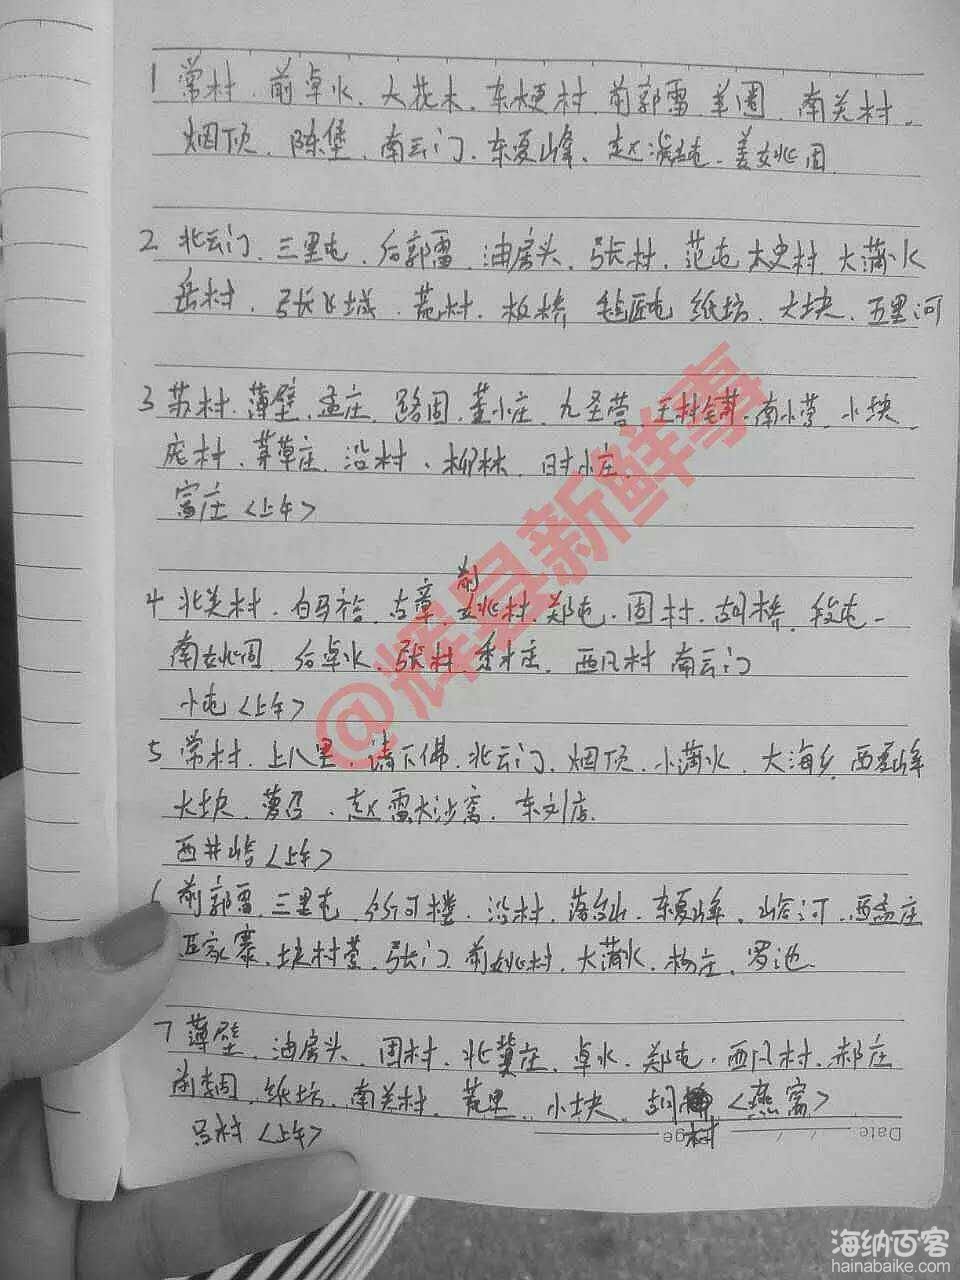 1 常村、前卓水、大花木、东梗村、前郭雷、羊圈、南关村、
烟顶、陈堡、南云门、东夏峰、赵 屯、姜姚固
2 北云门、三里屯、后郭雷、油房头、张村、范屯、太史村、大蒲水
岳村、张飞城、荒村、板桥、毡匠屯、纸坊、大块、五里河
3 苏村、薄壁、孟庄、路固、董小庄、九圣营、王村铺、南小营、小块、
庞村、茅草庄、沿村、柳林、 小庄
富庄〈上午〉
4 北关村、百 、古章、前姚村、郑屯、固村、胡桥、段屯、
南姚固、后卓水、张村、 庄、西风村、南云门
小屯〈上午〉
5 常村、上八里、请下佛、北云门、烟顶、小蒲水、大海乡、西夏峰
大块、 、赵雷、大沙窝、东刘店、
西井峪〈上午〉
6 前郭雷、三里屯、 河楼、沿村、 、东夏峰、峪河、西孟庄
家寨、块村营、张门、前姚村、大蒲水、杨庄、罗池
7 薄壁、油房头、固村、北冀庄、卓水、郑屯、西风村、郝庄
前李固、纸坊、南关村、荒里、小块、胡 〈燕窝〉
村
吕村〈上午〉
Page
Date
@辉县新鲜事
海纳百客
hainabaike.com